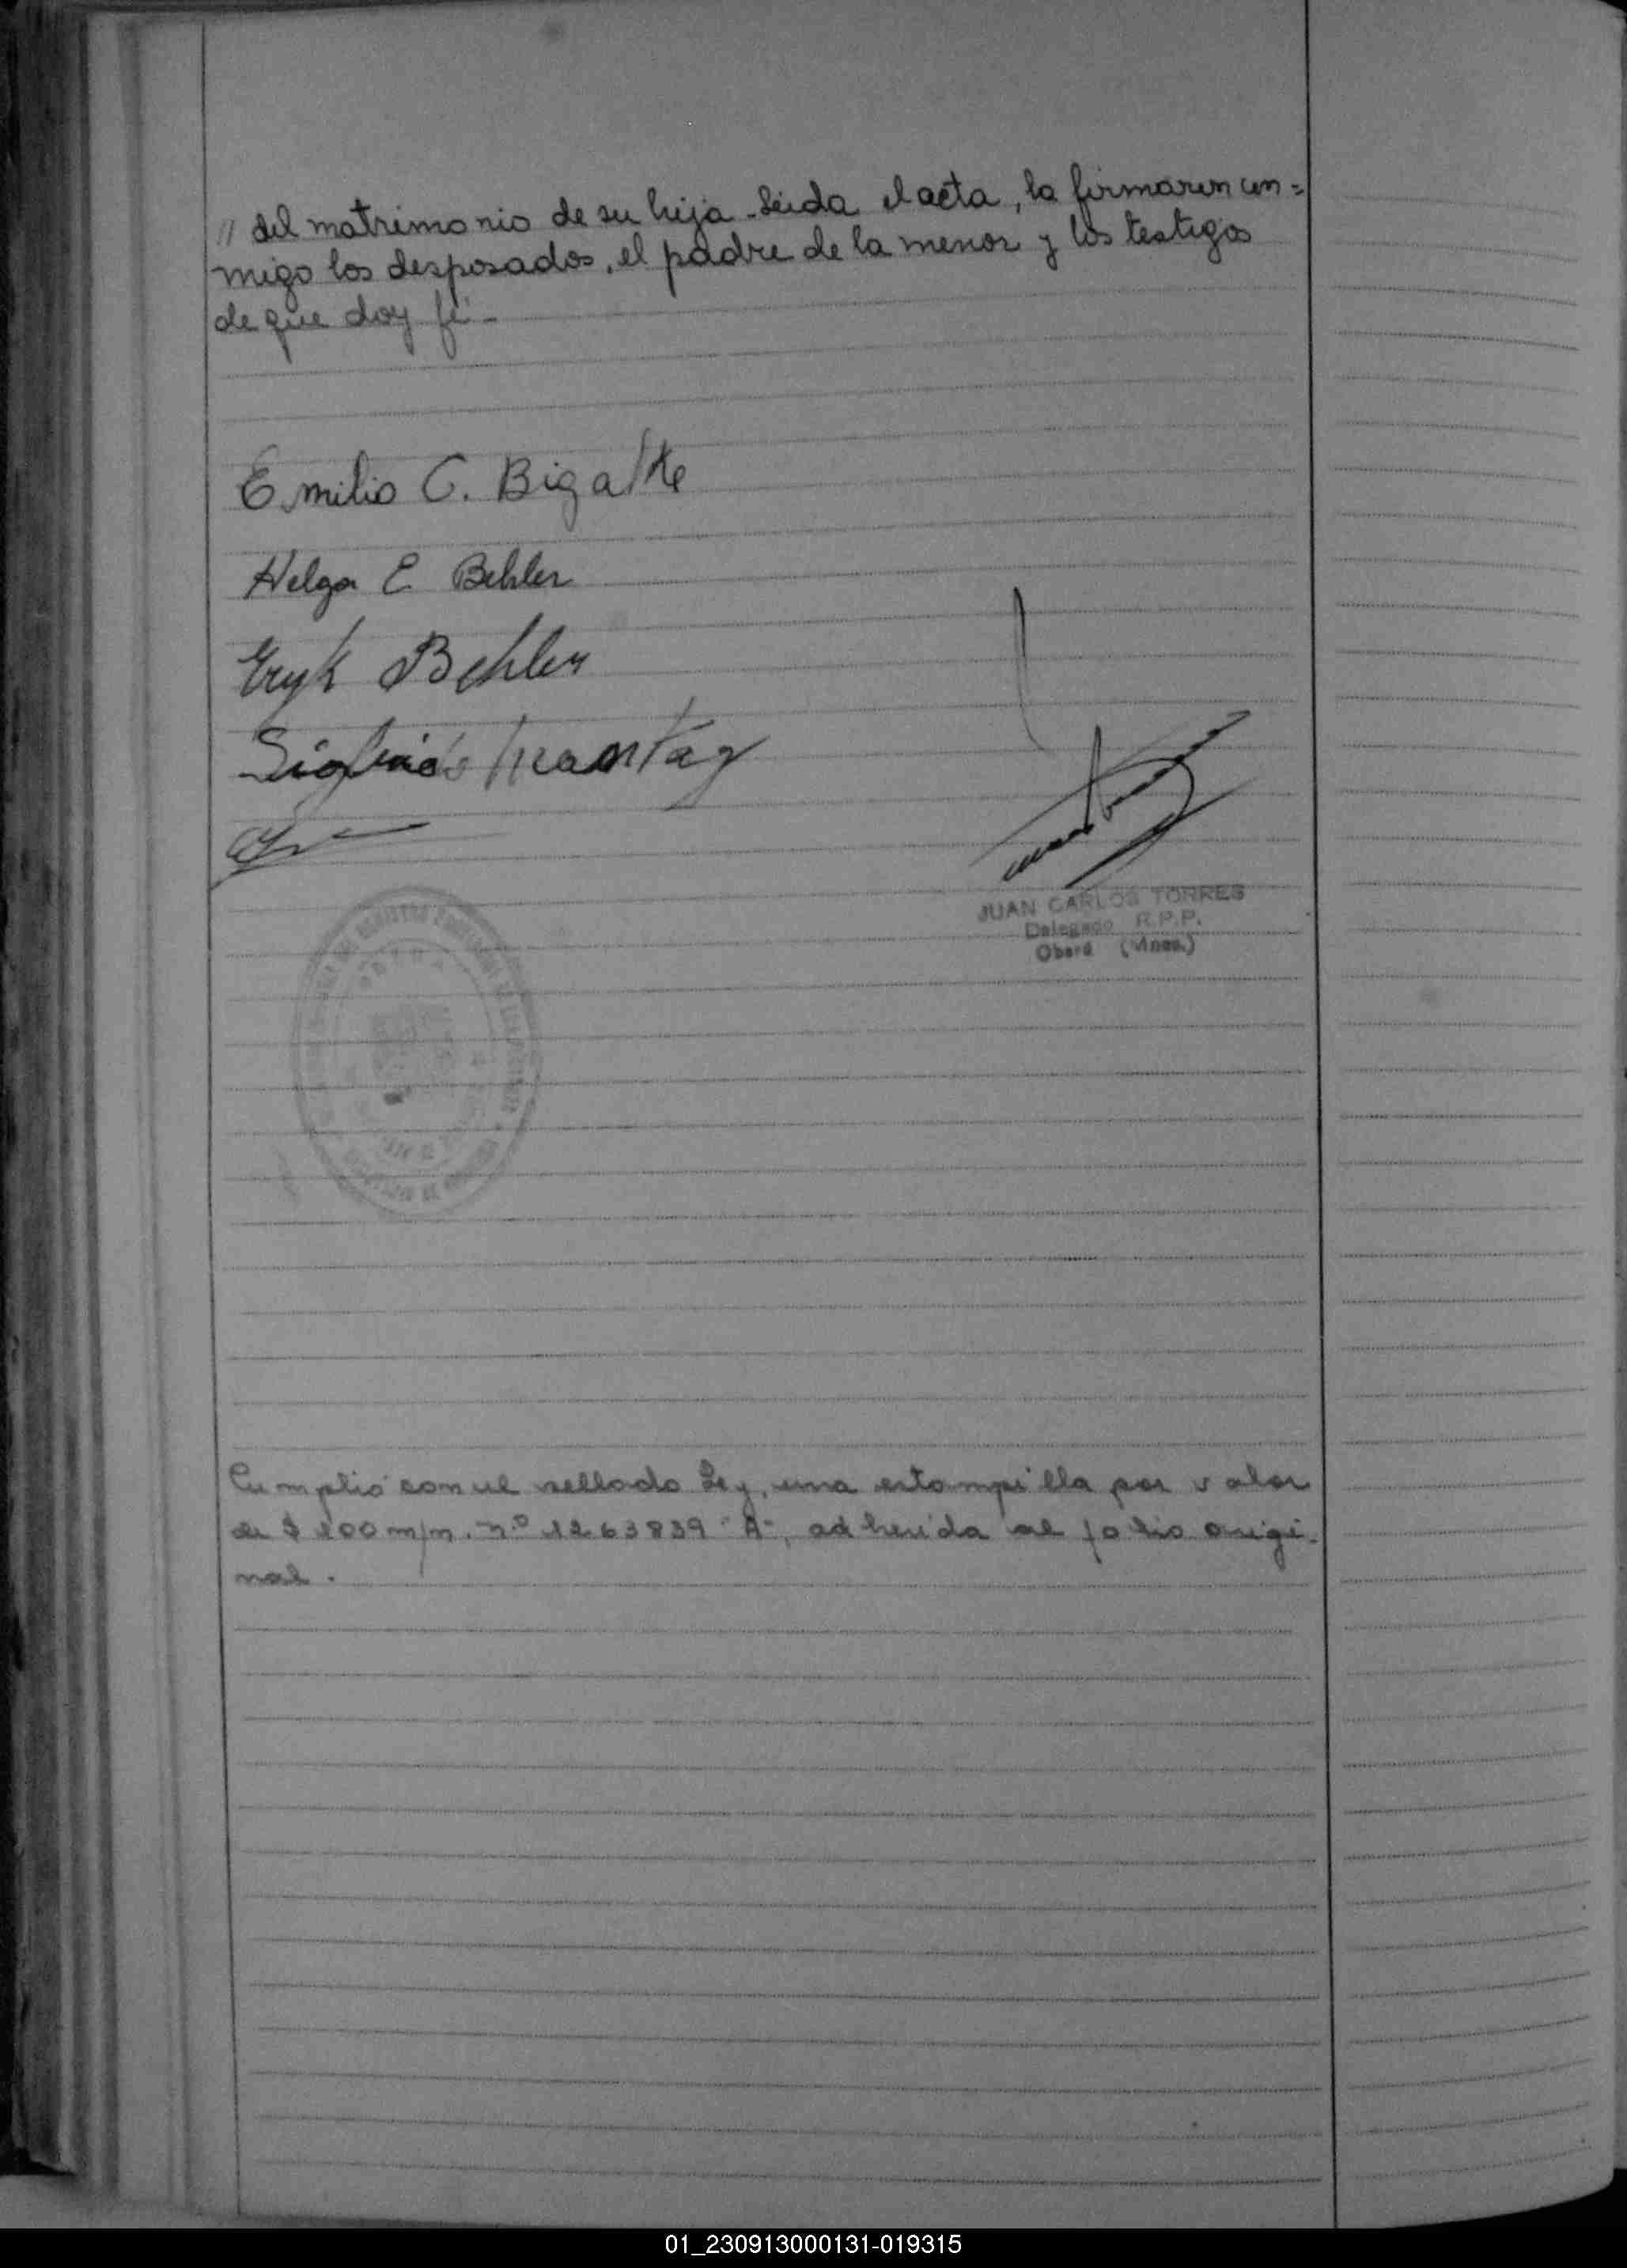 // del matrimonio de su hija - Leida el acta, la firmaron con=
migo los desposados, el padre de la menor y los testigos
de que doy fé -
Emilio C. Bigalke
Helga E Behler
Eryk Behler
JUAN CARLOS TORRES
Delegado R.P.P.
Oberá (Mnes.)
Cumplió con el sellado Ley, una estampilla por valor
de $ 200 m/n. n.º 1263839 "A", adherida al folio origi-
nal.
01_230913000131-019315